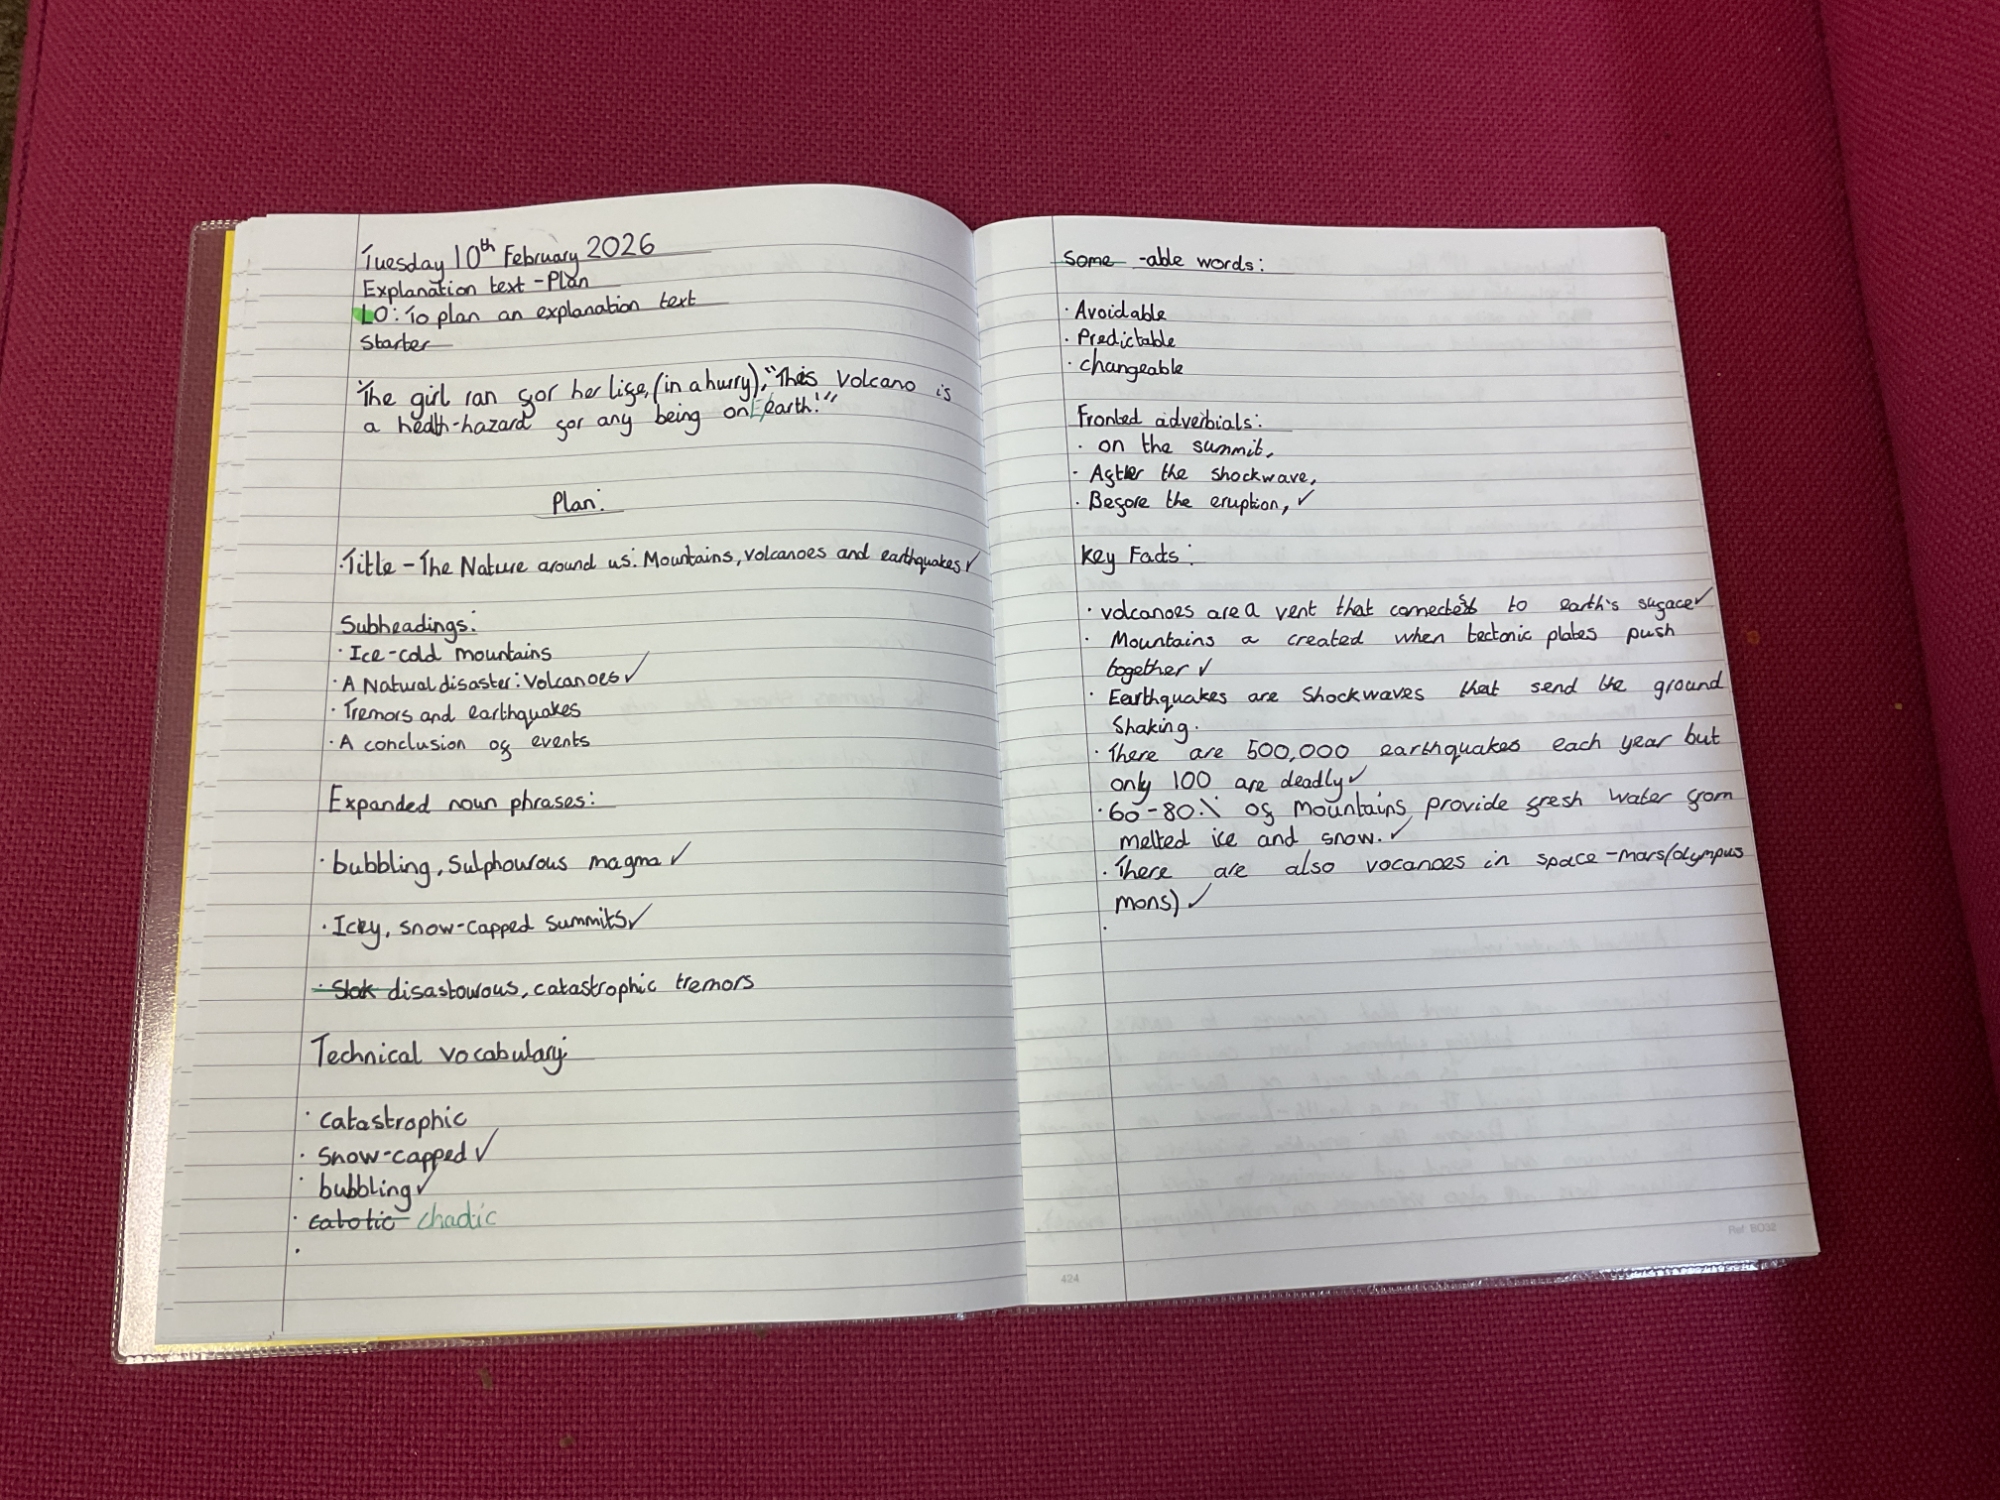 Tuesday 10th February 2026
Explanation text - Plan
LO: To plan an explanation text
Starter
"The girl ran for her life, (in a hurry), "This Volcano is
a health-hazard for any being on Earth!"
Plan:
·Title - The Nature around us: Mountains, volcanoes and earthquakes ✓
Subheadings:
· Ice-cold mountains
· A Natural disaster: Volcanoes ✓
· Tremors and earthquakes
· A conclusion of events
Expanded noun phrases:
· bubbling, Sulphourous magma ✓
· Icey, snow-capped summits ✓
· Slok disastourous, catastrophic tremors
Technical vocabulary:
· catastrophic
· Snow-capped ✓
· bubbling ✓
· catotic chaotic
·
Some -able words:
· Avoidable
· Predictable
· changeable
Fronted adverbials:
· on the summit,
· After the shockwave,
· Before the eruption, ✓
Key Facts:
· volcanoes are a vent that connects to earth's surface ✓
· Mountains a created when tectonic plates push
together ✓
· Earthquakes are Shockwaves that send the ground
Shaking.
· There are 500,000 earthquakes each year but
only 100 are deadly ✓
· 60-80% of mountains provide fresh water from
melted ice and snow. ✓
· There are also vocanoes in space - mars(olympus
mons) ✓
·
424
Ref BO32